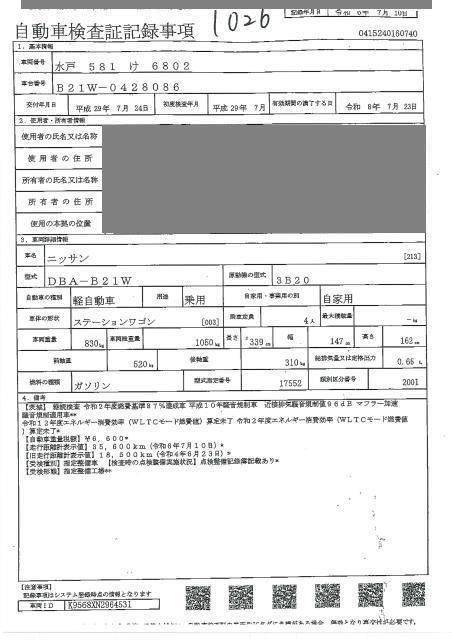 1026
記録年月日 令和 6年 7月 10日
自動車検査証記録事項
0415240160740
1. 基本情報
車両番号 水戸 581 け 6802
車台番号 B21W-0428086
交付年月日 平成 29年 7月 24日 初度検査年月 平成 29年 7月 有効期間の満了する日 令和 8年 7月 23日
2. 使用者・所有者情報
使用者の氏名又は名称
使用者の住所
所有者の氏名又は名称
所有者の住所
使用の本拠の位置
3. 車両詳細情報
車名 ニッサン [213]
型式 DBA-B21W 原動機の型式 3B20
自動車の種別 軽自動車 用途 乗用 自家用・事業用の別 自家用
車体の形状 ステーションワゴン [003] 乗車定員 4人 最大積載量 -kg
車両重量 830kg 車両総重量 1050kg 長さ 339cm 幅 147cm 高さ 162cm
前軸重 520kg 後軸重 310kg 総排気量又は定格出力 0.65 L
燃料の種類 ガソリン 型式指定番号 17552 類別区分番号 2001
4. 備考
【茨城】 継続検査 令和2年度燃費基準87%達成車 平成10年騒音規制車 近接排気騒音規制値96dB マフラー加速
騒音規制適用車**
令和12年度エネルギー消費効率(WLTCモード燃費値)算定未了 令和2年度エネルギー消費効率(WLTCモード燃費値
)算定未了*
【自動車重量税額】¥6,600*
【走行距離計表示値】35,600km(令和6年7月10日)*
【旧走行距離計表示値】18,500km(令和4年6月23日)*
【受検種別】指定整備車 【検査時の点検整備実施状況】点検整備記録簿記載あり*
【受検形態】指定整備工場**
【注意事項】
記載事項はシステム登録時点の情報となります
車両ID K9568XN2964531